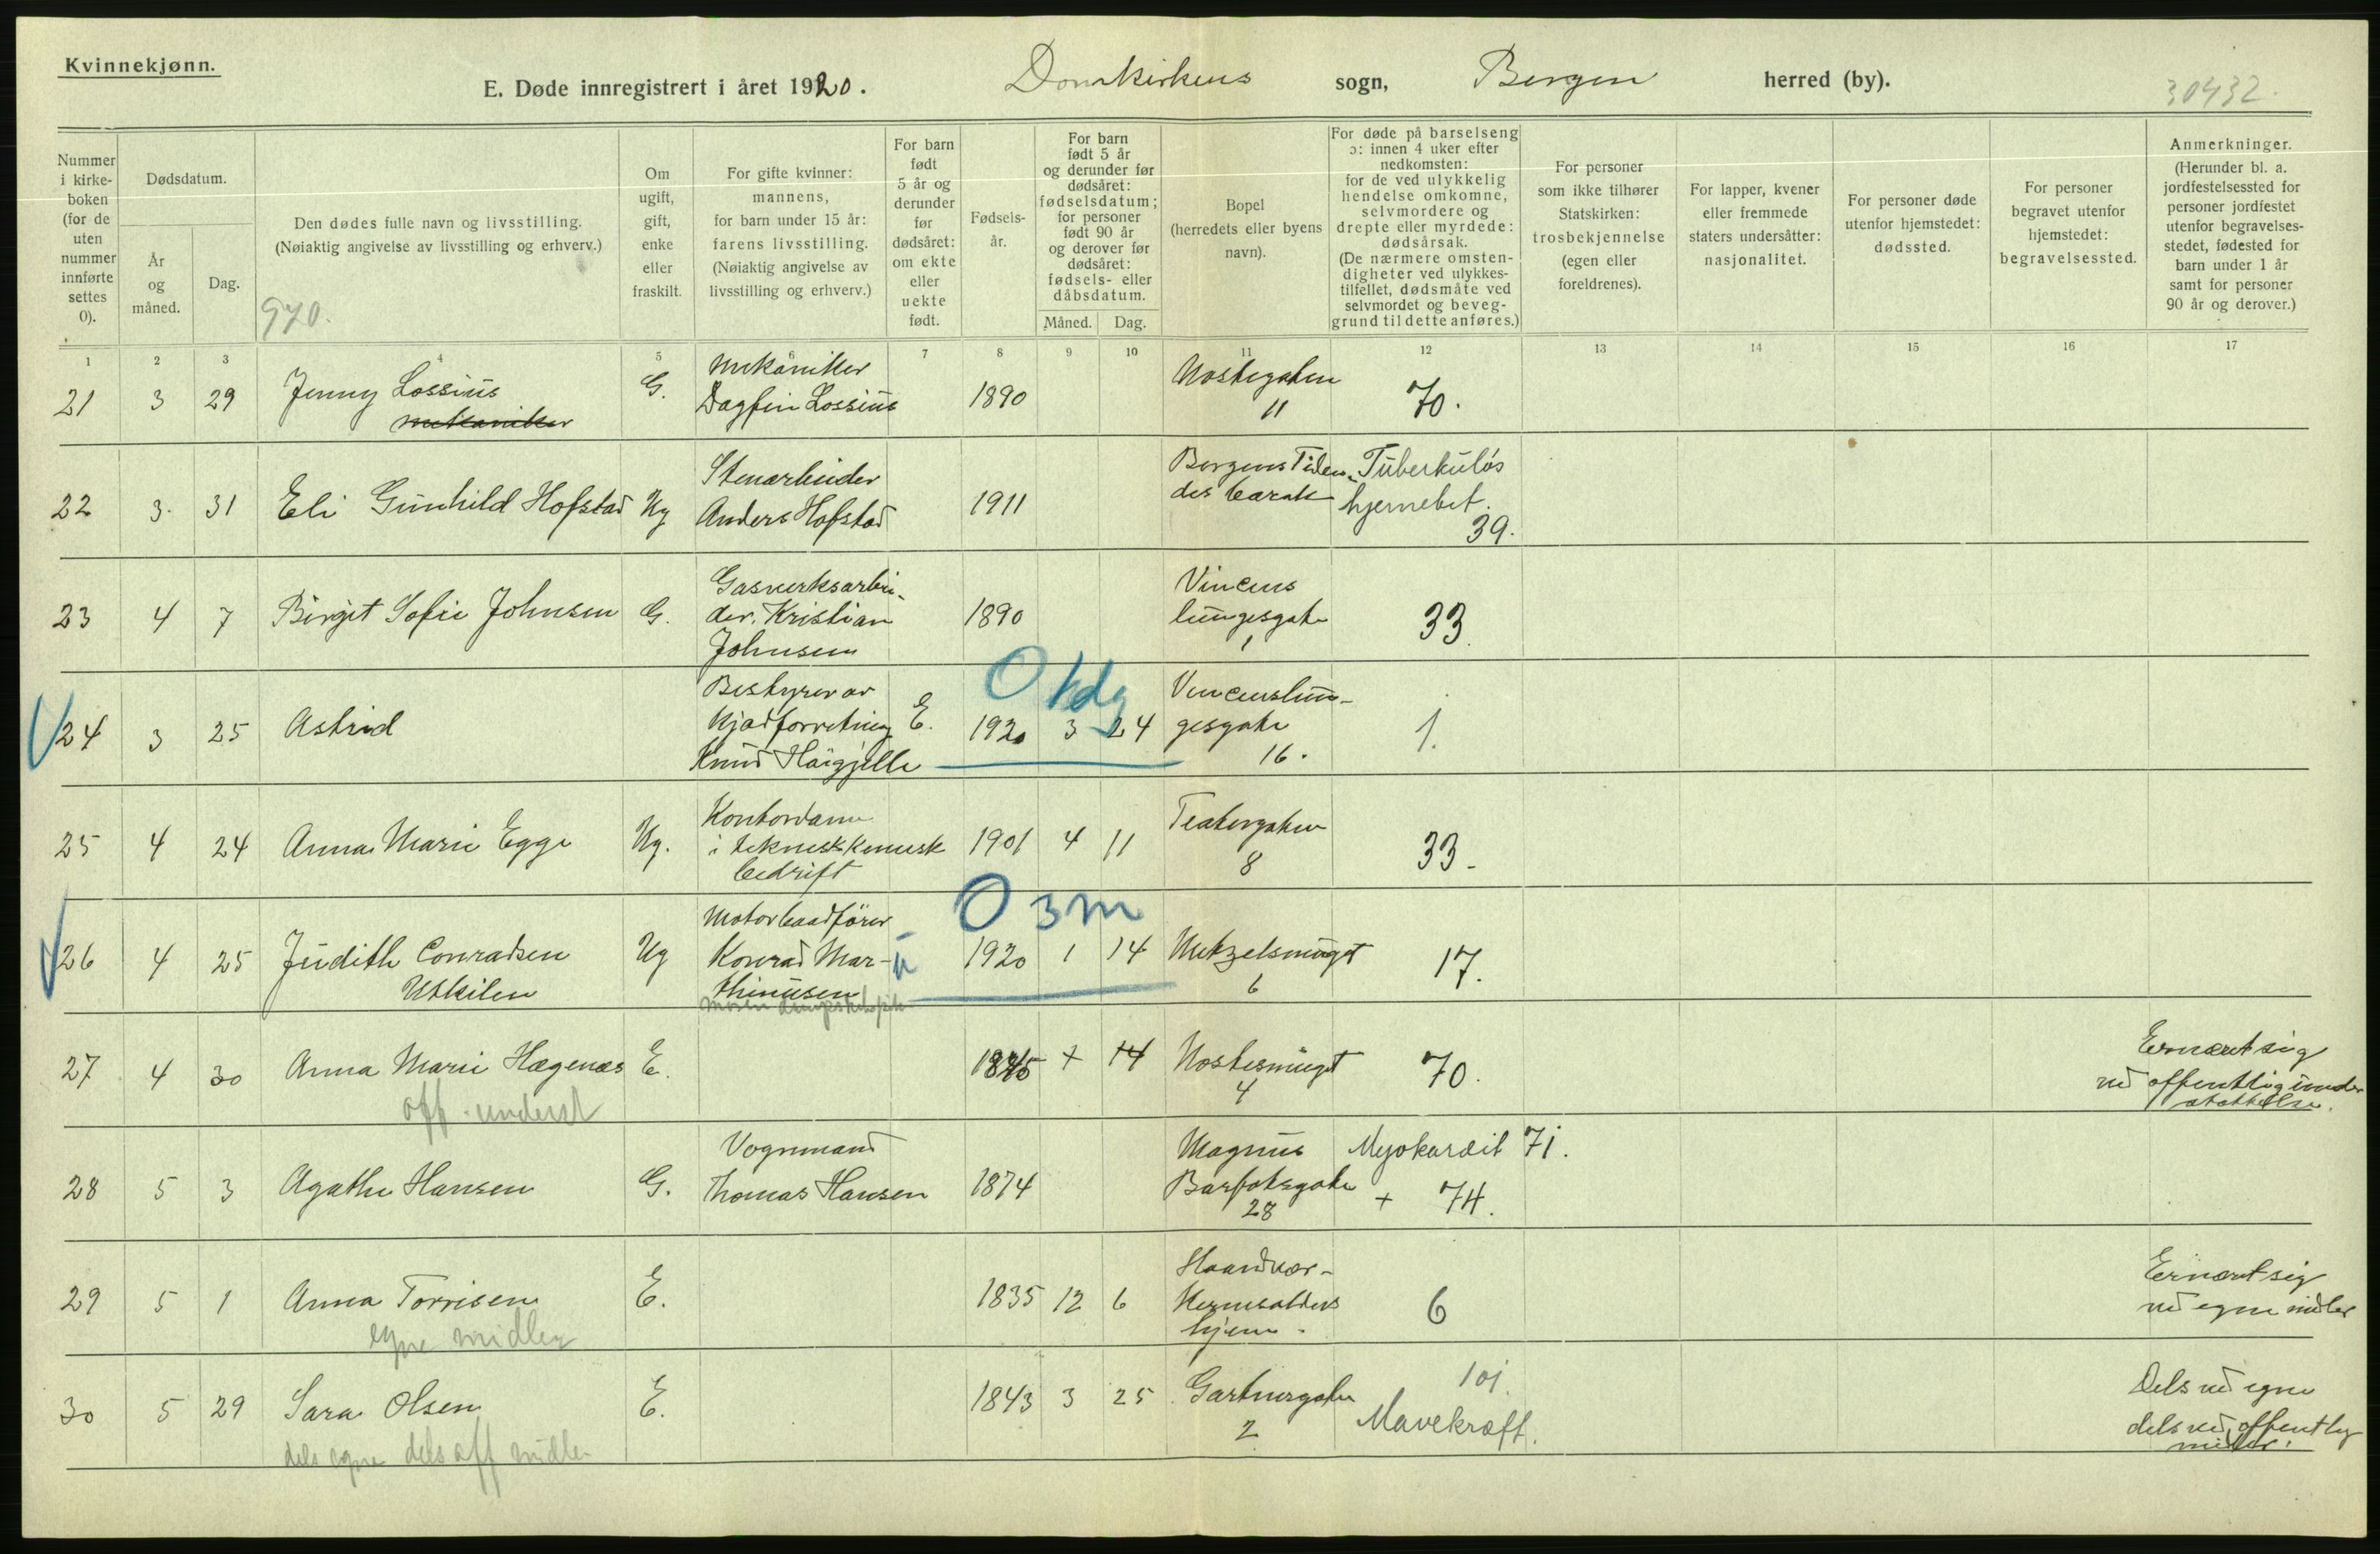 Kvinnekjønn.
E. Døde innregistrert i året 1920.
Domkirkens sogn, Bergen herred (by).
30432.
Nummer i kirke- boken (for de uten nummer innførte settes 0).
Dødsdatum.
År og måned.
Dag.
Den dødes fulle navn og livsstilling.
(Nøiaktig angivelse av livsstilling og erhverv.)
970.
Om ugift, gift, enke eller fraskilt.
For gifte kvinner: mannens, for barn under 15 år: farens livsstilling. (Nøiaktig angivelse av livsstilling og erhverv.)
For barn født 5 år og derunder før dødsåret: om ekte eller uekte født.
Fødsels- år.
For barn født 5 år og derunder før dødsåret: fødselsdatum; for personer født 90 år og derover før dødsåret: fødsels- eller dåbsdatum.
Måned. Dag.
Bopel (herredets eller byens navn).
For døde på barselseng ɔ: innen 4 uker efter nedkomsten: for de ved ulykkelig hendelse omkomne, selvmordere og drepte eller myrdede: dødsårsak. (De nærmere omsten- digheter ved ulykkes- tilfellet, dødsmåte ved selvmordet og beveg- grund til dette anføres.)
For personer som ikke tilhører Statskirken: trosbekjennelse (egen eller foreldrenes).
For lapper, kvener eller fremmede staters undersåtter: nasjonalitet.
For personer døde utenfor hjemstedet: dødssted.
For personer begravet utenfor hjemstedet: begravelsessted.
Anmerkninger. (Herunder bl. a. jordfestelsessted for personer jordfestet utenfor begravelses- stedet, fødested for barn under 1 år samt for personer 90 år og derover.)
1 2 3 4 5 6 7 8 9 10 11 12 13 14 15 16 17
21 3 29 Jenny Lossius G. Mekaniker 1890 Nostegaten 70.
mekaniker Dagfin Lossius 11
22 3. 31 Eli Gunhild Hofstad Ug Stenarbeider 1911 Bergens Tiden- Tuberkuløs
Anders Hofstad des barak hjernebet.
39.
23 4 7 Birgit Sofie Johnsen G. Gasverksarbei- 1890 Vincens 33.
der. Kristian lungesgate
Johnsen 1
24 3 25 Astrid Bestyrer av E. 1920 3 24 Vincenslun- 1.
Kjødforretning gesgate
Knud Haugjelle 16.
0 1 dg
25 4 24 Anna Marie Egge Ug. Kontordame 1901 4 11 Teatergaten 33.
i teknisk kemisk 8
bedrift
0 3 m
26 4 25 Judith Conradsen Ug Motorbaadfører 1920 1 14 Metzelsmuget 17.
Utkilen Konrad Mar- u 6
thinusen
27 4 30 Anna Marie Hægenæs E. 1845 + 14 Nostesmuget 70. Ernæret sig
off. underst 4 ved offentlig under
støttelse.
28 5 3 Agathe Hansen G. Vognmand 1874 Magnus Myokardit 71.
Thomas Hansen Barfotsgate + 74.
28
29 5 1 Anna Torrisen E. 1835 12 6 Haandvær- 6 Ernæret sig
egne midler kernesalders ved egne midler
hjem.
30 5 29 Sara Olsen E. 1843 3 25 Gartnergaten 101. Dels ved egne
dels egne dels off midler 2 Mavekræft. dels ved offentlig
midler.